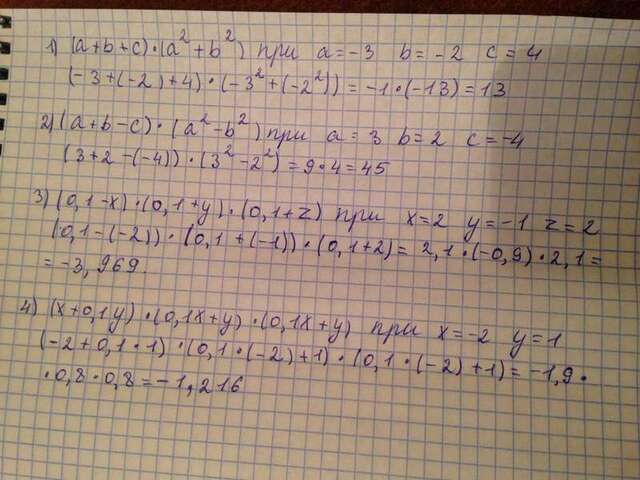 1) (a+b+c)·(a²+b²) при a=-3 b=-2 c=4
(-3+(-2)+4)·(-3²+(-2²))=-1·(-13)=13
2) (a+b-c)·(a²-b²) при a=3 b=2 c=-4
(3+2-(-4))·(3²-2²)=9·4=45
3) (0,1-x)·(0,1+y)·(0,1+z) при x=2 y=-1 z=2
(0,1-(-2))·(0,1+(-1))·(0,1+2)=2,1·(-0,9)·2,1=
=-3,969.
4) (x+0,1y)·(0,1x+y)·(0,1x+y) при x=-2 y=1
(-2+0,1·1)·(0,1·(-2)+1)·(0,1·(-2)+1)=-1,9·
·0,8·0,8=-1,216